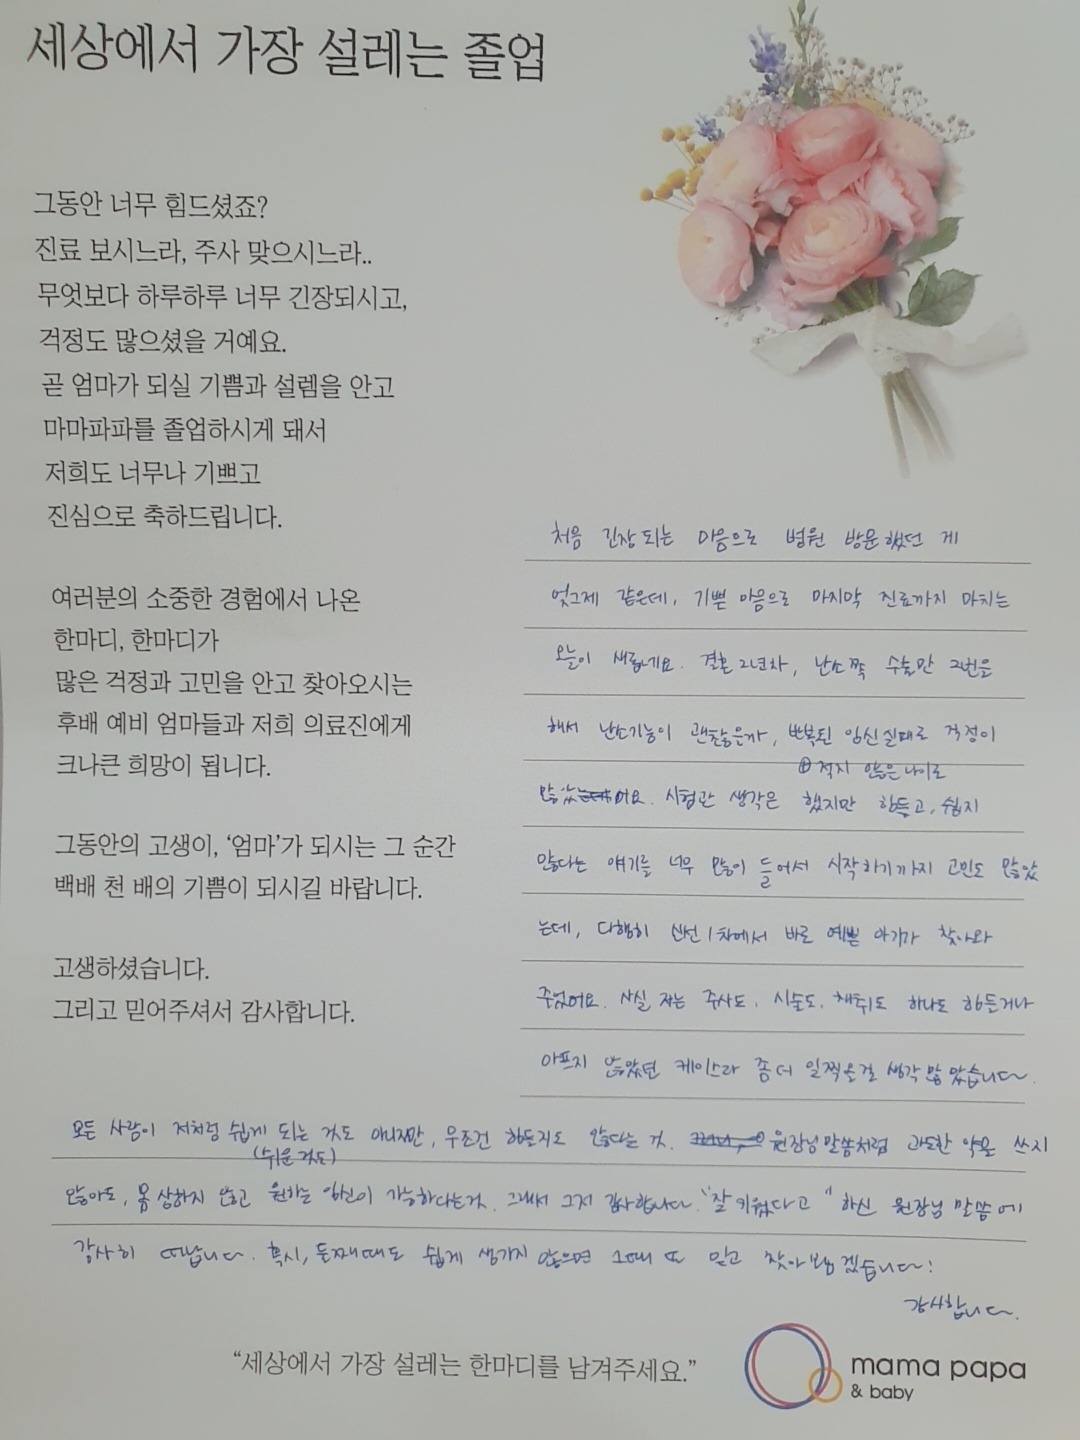 세상에서 가장 설레는 졸업
그동안 너무 힘드셨죠?
진료 보시느라, 주사 맞으시느라..
무엇보다 하루하루 너무 긴장되시고,
걱정도 많으셨을 거예요.
곧 엄마가 되실 기쁨과 설렘을 안고
마마파파를 졸업하시게 돼서
저희도 너무나 기쁘고
진심으로 축하드립니다.
여러분의 소중한 경험에서 나온
한마디, 한마디가
많은 걱정과 고민을 안고 찾아오시는
후배 예비 엄마들과 저희 의료진에게
크나큰 희망이 됩니다.
그동안의 고생이, ‘엄마’가 되시는 그 순간
백배 천 배의 기쁨이 되시길 바랍니다.
고생하셨습니다.
그리고 믿어주셔서 감사합니다.
처음 긴장되는 마음으로 병원 방문했던 게
엊그제 같은데, 기쁜 마음으로 마지막 진료까지 마치는
오늘이 새롭네요. 결혼 2년차, 난소쪽 수술만 2번을
해서 난소기능이 괜찮을까, 반복된 임신실패로 걱정이
⊕적지 않은 나이로
많았어요. 시험관 생각은 했지만 힘들고, 쉽지
않다는 얘기를 너무 많이 들어서 시작하기까지 고민도 많았
는데, 다행히 신선 1차에서 바로 예쁜 아기가 찾아와
주었어요. 사실 저는 주사도, 시술도, 채취도 하나도 힘든거나
아프지 않았던 케이스라 좀 더 일찍올걸 생각 많았습니다~.
모든 사람이 저처럼 쉽게 되는 것도 아니지만, 무조건 힘든지도 않다는 것. 원장님 말씀처럼 과도한 약을 쓰지
(쉬운 것도)
않아도, 몸 상하지 않고 원하는 임신이 가능하다는 것. 그래서 그저 감사합니다. "잘 키웠다고" 하신 원장님 말씀에
감사히 떠납니다. 혹시, 둘째때도 쉽게 생기지 않으면 그때 또 믿고 찾아뵙겠습니다!
감사합니다.
“세상에서 가장 설레는 한마디를 남겨주세요.”
mama papa
& baby